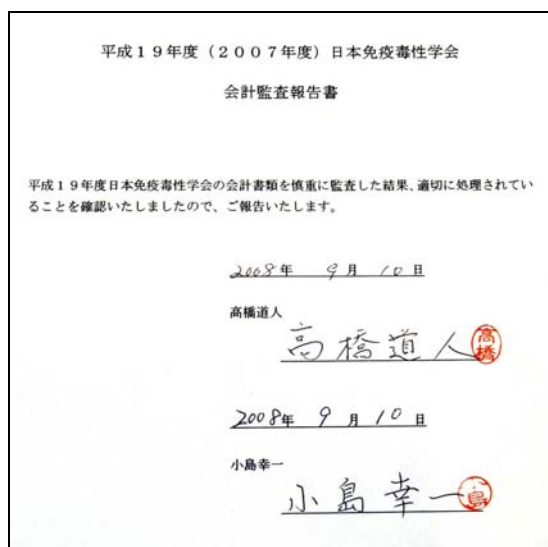 平成１９年度（２００７年度）日本免疫毒性学会
会計監査報告書
平成１９年度日本免疫毒性学会の会計書類を慎重に監査した結果、適切に処理されてい
ることを確認いたしましたので、ご報告いたします。
2008年 9月 10日
高橋道人
高橋道人 高橋
2008年 9月 10日
小島幸一
小島幸一 小島